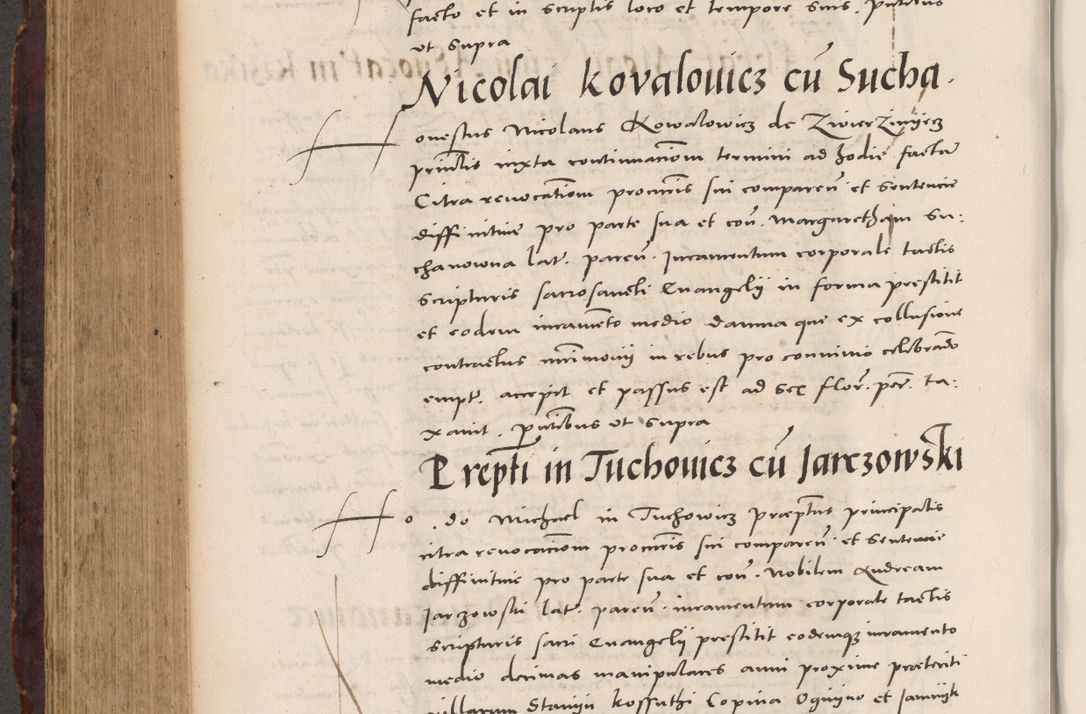 facto et in scriptis loco et tempore suis. putibus
ut supra
Nicolai kovalouicz cū Sucha.
Honestus Nicolaus Kowalowicz de Zwierziniecz
prin̄lis iuxta continuaciom̄ termini ad hodie factū
Citra reuocatiom̄ procur̄is sui comparen̄ et sentencie
diffinitiue pro parte sua et con̄. Margaretham Su:
chanowna lat. paren̄. Juramentum corporale tactis
scripturis sacrosancti Euangelij in forma prestitit
et eodem iuramēto medio damna que ex collusione
contractus mr̄imonij in rebus pro conuiuio celebrādo
empt. accepit et passus est ad sex flor. per. ta:
xauit. Putibus ut supra
Prepti in Tuchouicz cū Jarczowski
Ho.do Michael in Tuchowicz præptus principalis
citra reuocaciom̄ procur̄is sui comparen̄ et sentencie
diffinitiue pro parte sua et con̄. Nobilem Andream
Jarczowski lat. paren̄. iuramentum corporale tactis
scripturis sacri Euangelij prestitit eodemqz iuramento
medio decimas manipulares anni proxime præteriti
villarum Stanijn kossuthi Copina Oguijno et Jamnijk